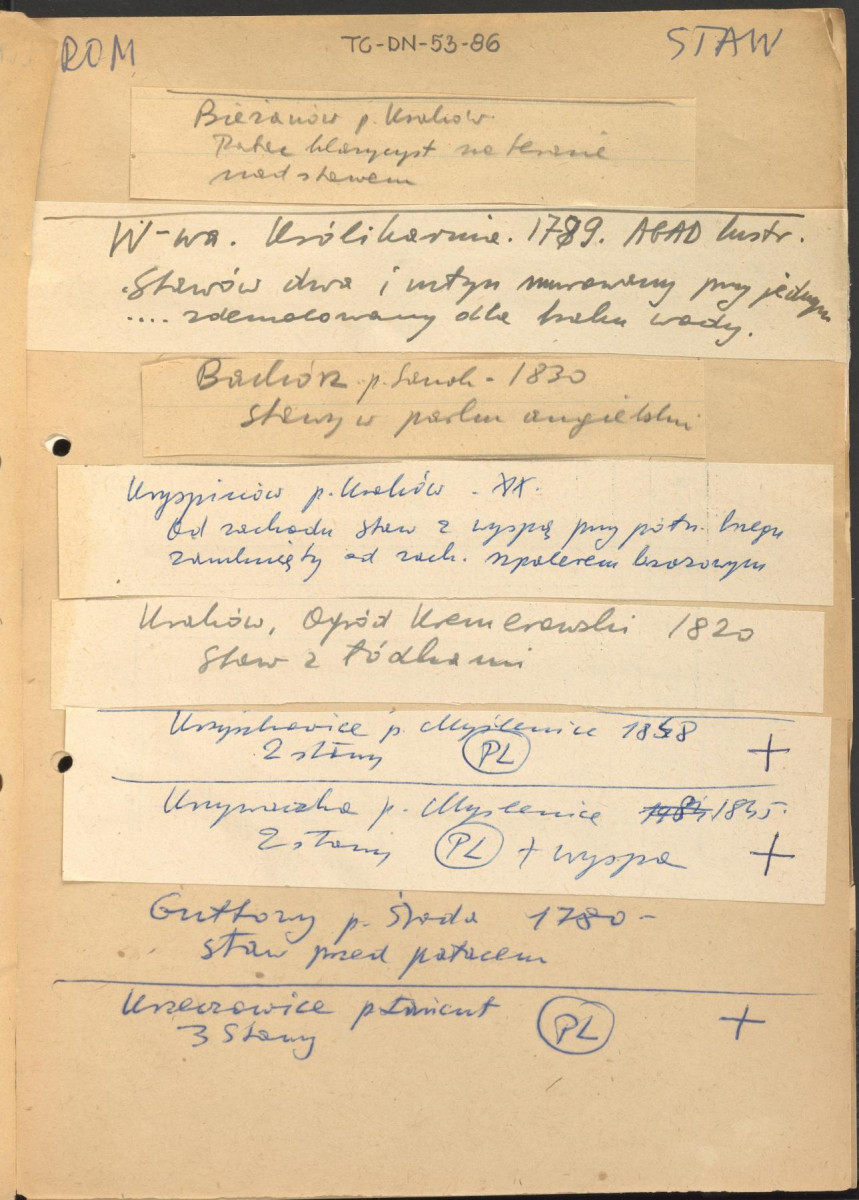 ROM
TG-DN-53-86
STAW
Bieżanów p. Kraków.
Pałac klasycyst na terasie
nad stawem
W-wa. Królikarnia. 1789. AGAD lustr.
.Stawów dwa i młyn murowany przy jednym
.... zdemolowany dla braku wody.
Bachórz p. Sanok - 1830
stawy w parku angielskim
Kryspinów p. Kraków. XX.
Od zachodu staw z wyspą przy półn. brzegu
zamknięty od zach. szpalerem brzozowym
Kraków, Ogród Kremerowski 1820
staw z łódkami
Krzyszkowice p. Myślenice 1848
2 stawy PL +
Krzywaczka p. Myślenice 1845.
2 stawy PL + wyspa +
Guttowy p. Środa 1780 -
staw przed pałacem
Krzeczowice p Łańcut PL +
3 Stawy